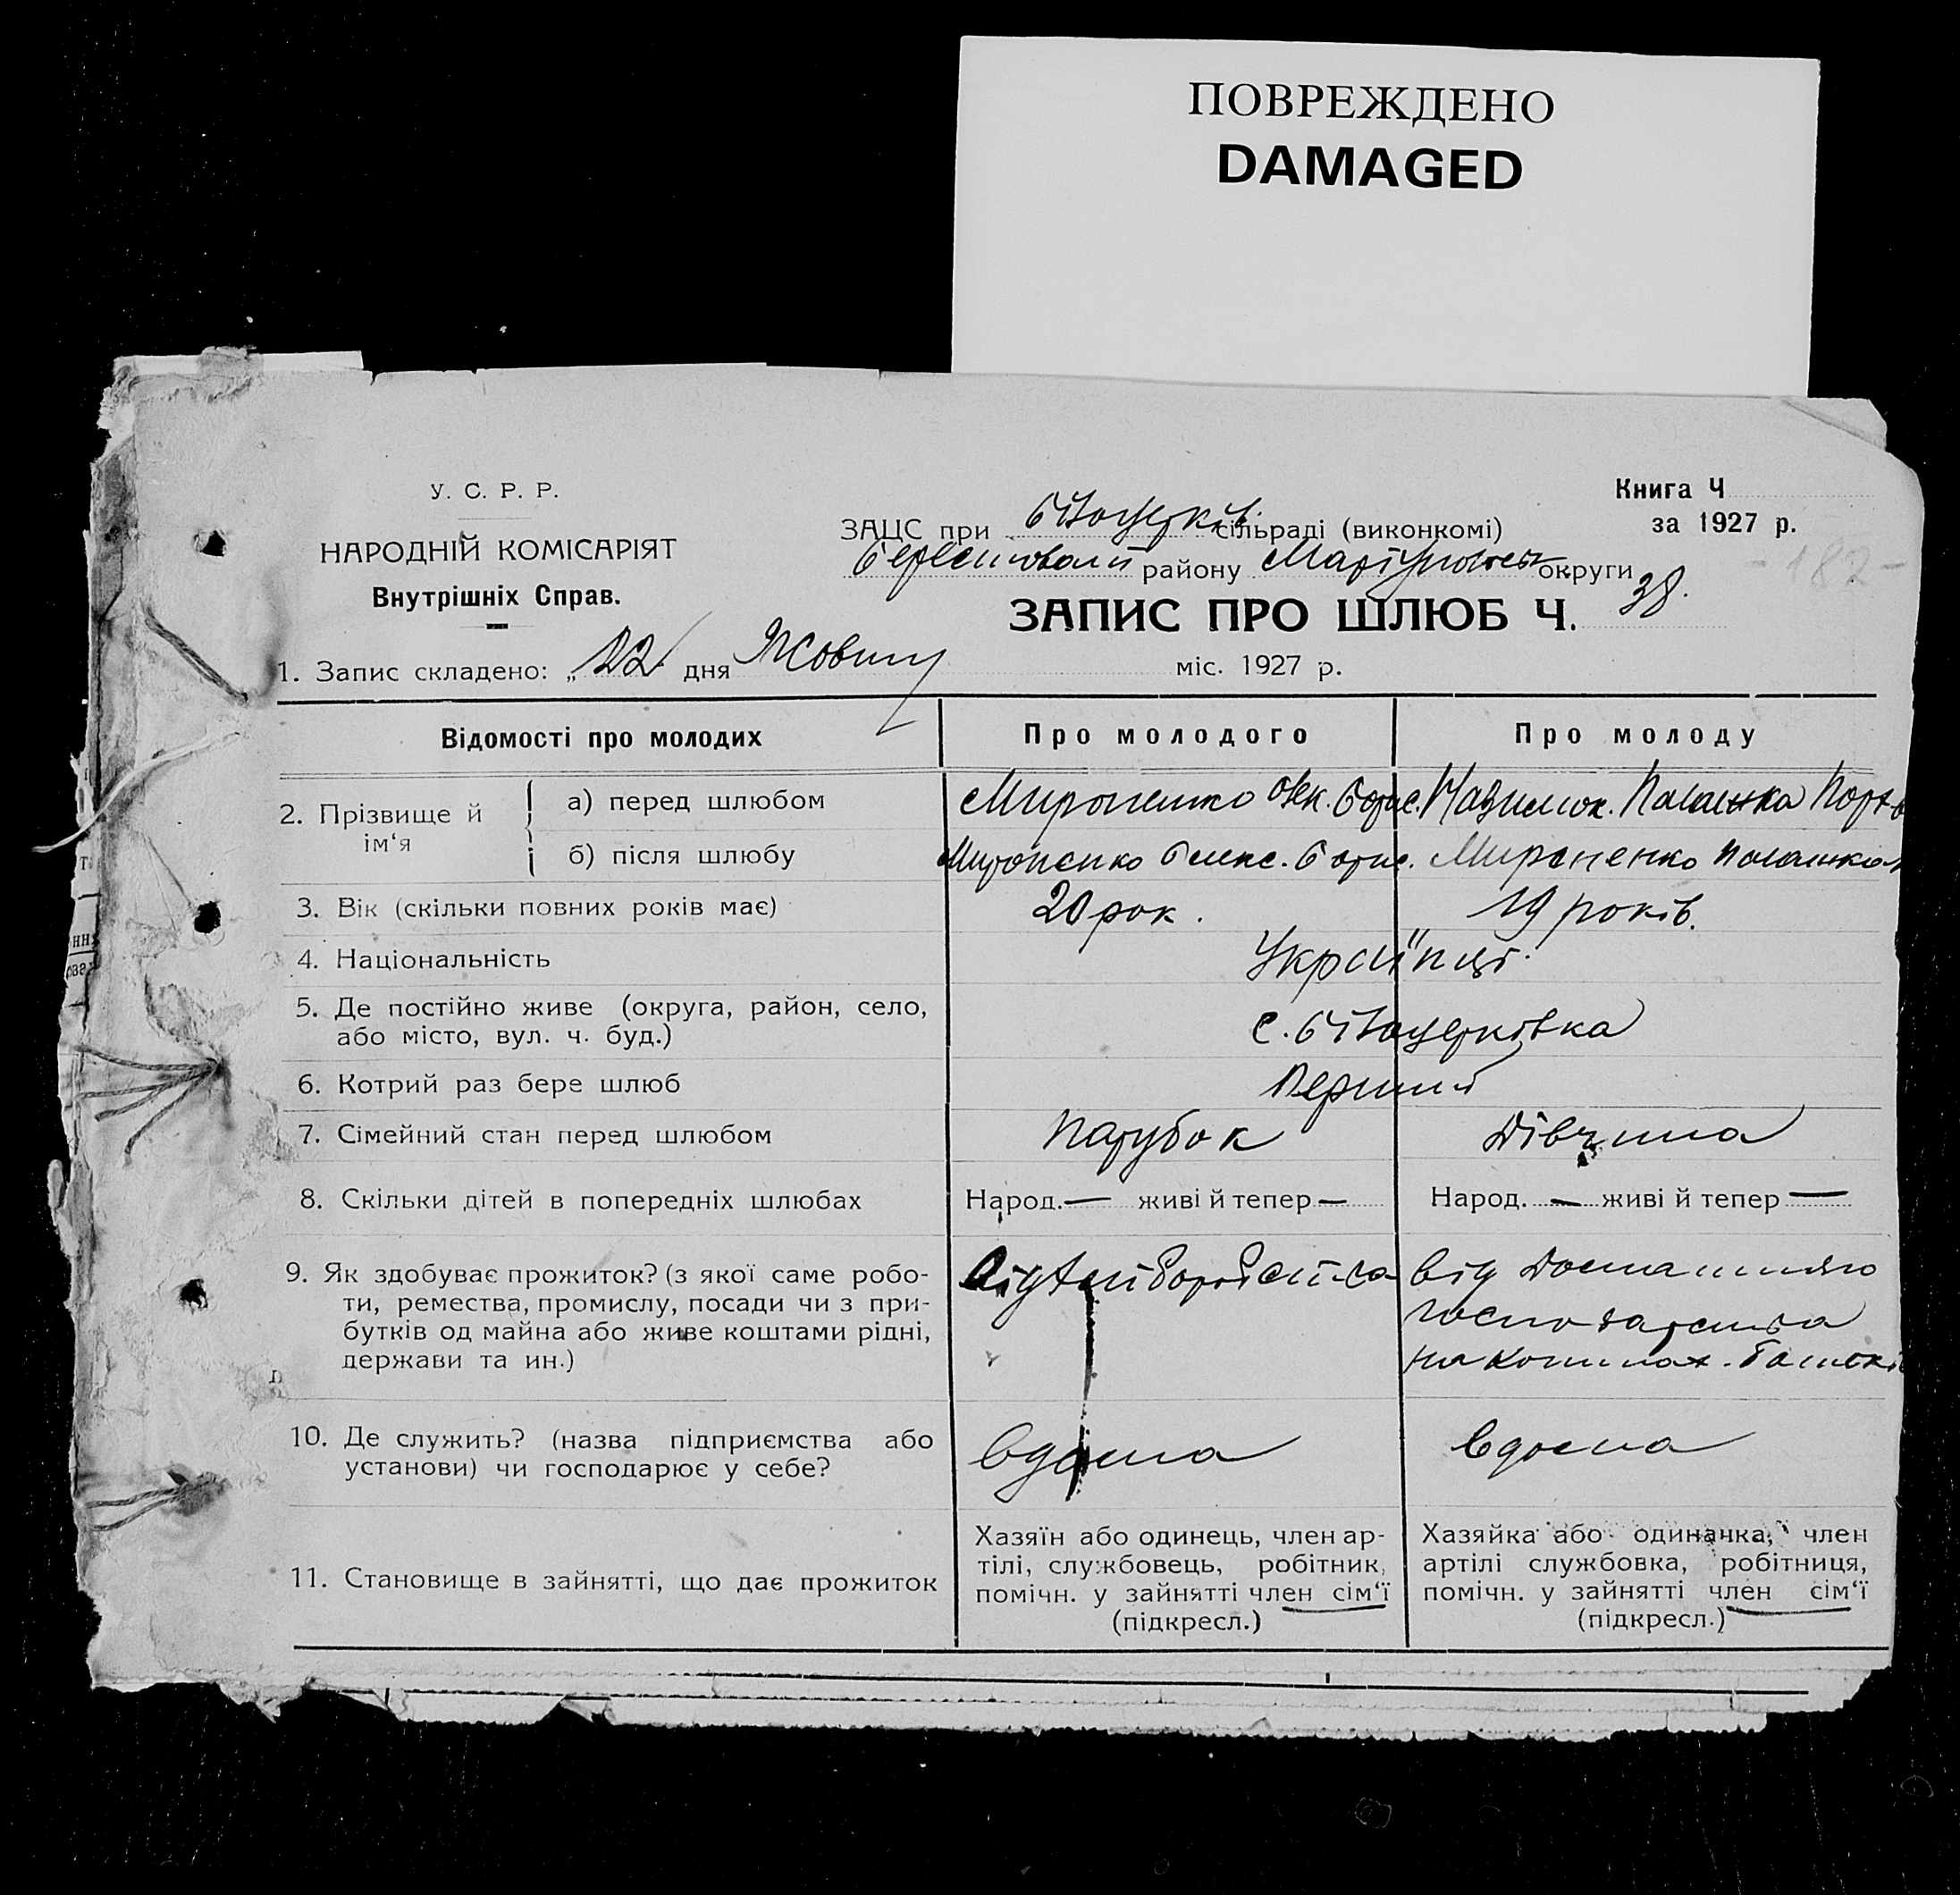 ПОВРЕЖДЕНО
DAMAGED
У. С. Р. Р.
НАРОДНІЙ КОМІСАРІЯТ
Внутрішніх Справ.
Книга Ч
за 1927 р.
ЗАЦС при сільраді (виконкомі)
району округи
- 182 -
ЗАПИС ПРО ШЛЮБ Ч. 38.
1. Запис складено: „ 22 дня Жовтня міс. 1927 р.
Відомості про молодих
Про молодого
Про молоду
2. Прізвище й ім‘я
а) перед шлюбом
Мироненко Борис.
б) після шлюбу
Мироненко Олекс. Борис.
Мироненко
3. Вік (скільки повних років має)
20 рок.
19 років.
4. Національність
Українці.
5. Де постійно живе (округа, район, село,
або місто, вул. ч. буд.)
с. Білоцерківка
6. Котрий раз бере шлюб
Перший
7. Сімейний стан перед шлюбом
Парубок
Дівчина
8. Скільки дітей в попередніх шлюбах
Народ. — живі й тепер —
Народ. — живі й тепер —
9. Як здобуває прожиток? (з якої саме робо-
ти, ремества, промислу, посади чи з при-
бутків од майна або живе коштами рідні,
держави та ин.)
від Домашняго
господарства
на коштах
10. Де служить? (назва підприємства або
установи) чи господарює у себе?
вдома
вдома
11. Становище в зайнятті, що дає прожиток
Хазяїн або одинець, член ар-
тілі, службовець, робітник,
помічн. у зайнятті член сім‘ї
(підкресл.)
Хазяйка або одиначка, член
артілі службовка, робітниця,
помічн. у зайнятті член сім‘ї
(підкресл.)